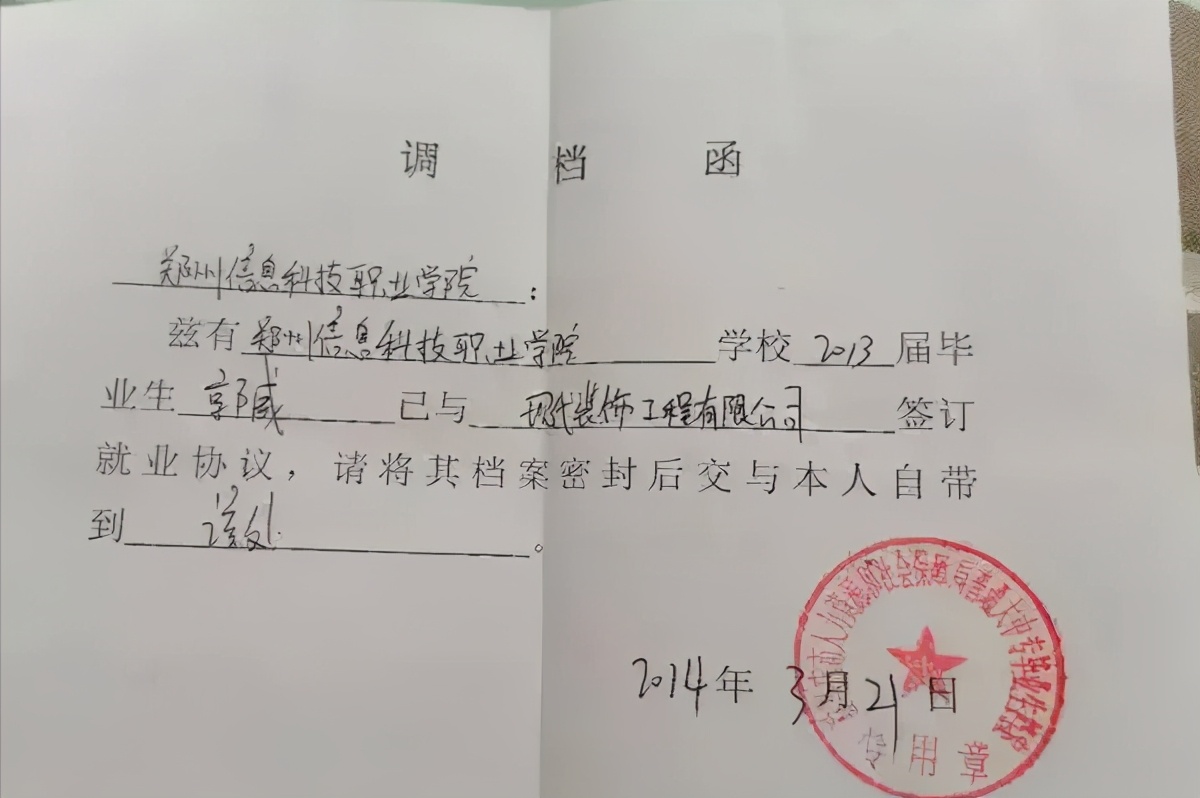 调档函
郑州信息科技职业学院：
兹有郑州信息科技职业学院学校2013届毕
业生郭威已与现代装饰工程有限公司签订
就业协议，请将其档案密封后交与本人自带
到该处。
2014年3月21日
市人力资源和社会保障局普通大中专毕业生
专用章